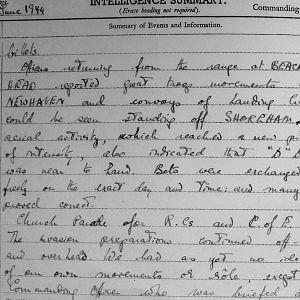 INTELLIGENCE SUMMARY.
June 1944
(Erase heading not required).
Commanding
Summary of Events and Information.
billets.
Officers returning from the range at BEACH
HEAD reported great troop movements
NEWHAVEN and convoys of landing C
could be seen standing off SHOREHAM,
aerial activity, which reached a new p
of intensity, also indicated that "D"
was near to hand. Bets were exchanged
freely on the exact day and time: and many
proved correct.
Church Parade for R.Cs and C. of E.
The invasion preparations continued off
and overhead. We had as yet no ide
of our own movements or rôle except
Commanding Officer who was briefed